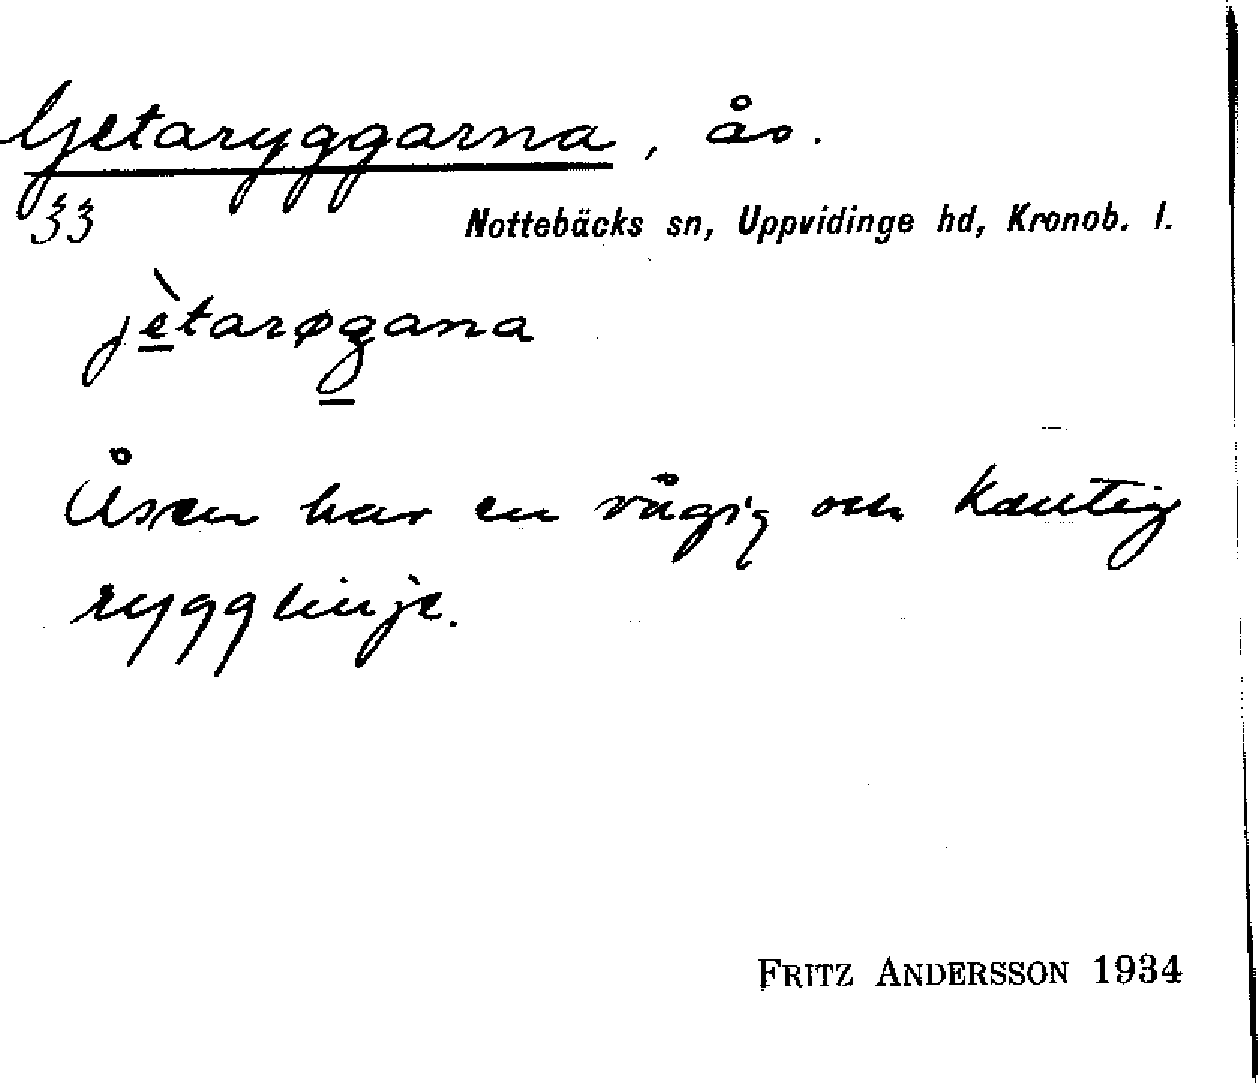 Getaryggarna, ås.
33
Nottebäcks sn, Uppvidinge hd, Kronob. l.
jètarøgana
Åsen har en vågig och kantig
rygglinje.
FRITZ ANDERSSON 1934